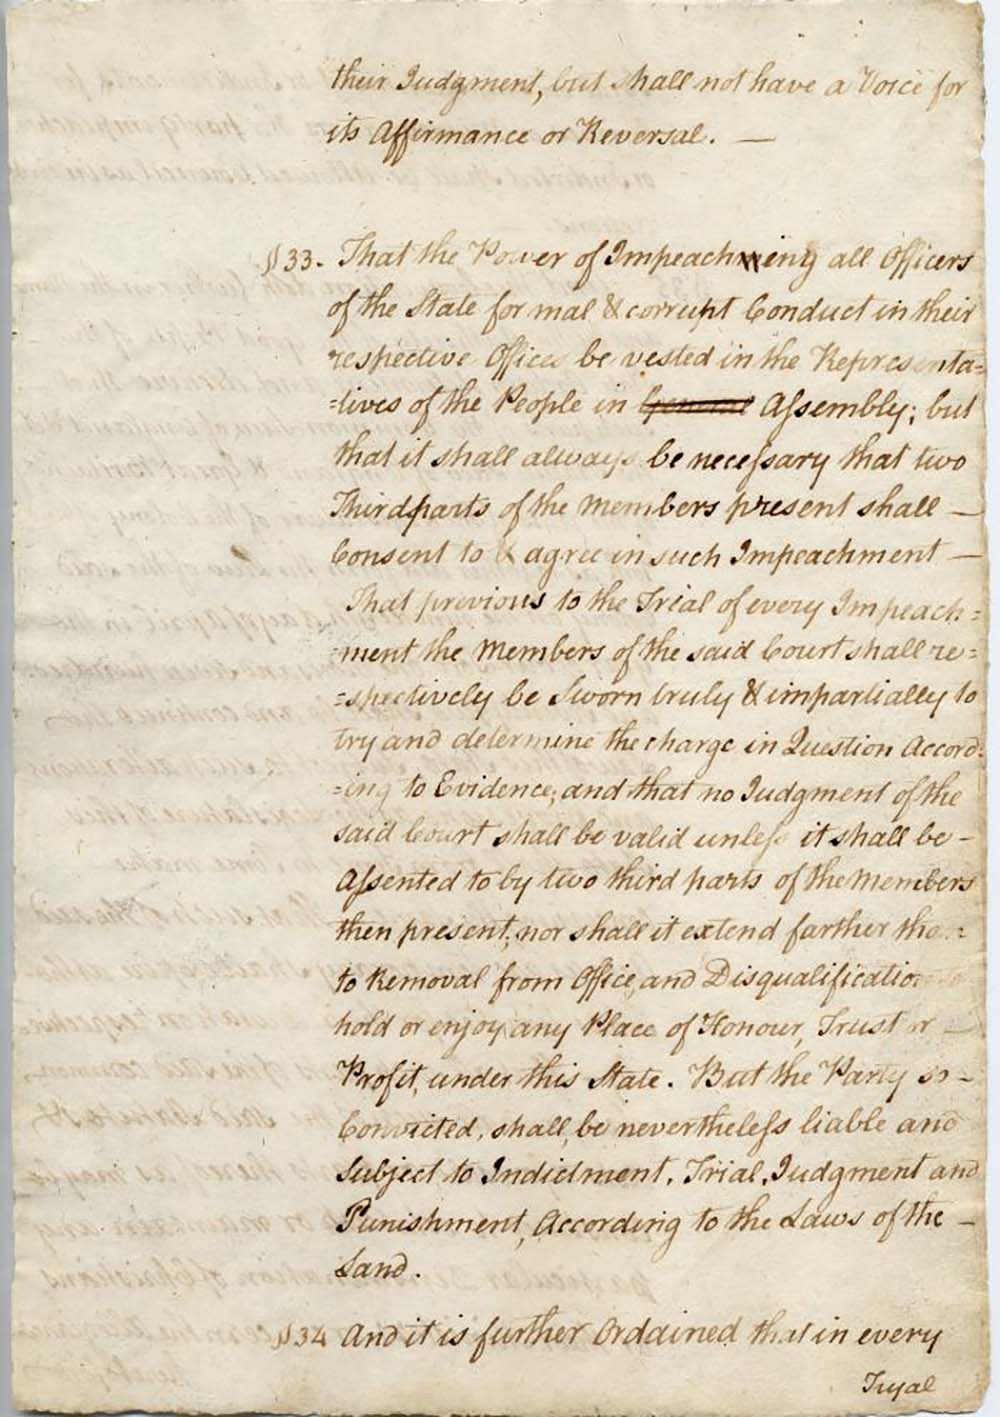 their Judgment, but shall not have a Voice for
its Affirmance or Reversal. —
§33. That the Power of Impeaching all Officers
of the State for mal & corrupt Conduct in their
respective Offices be vested in the Representa=
=tives of the People in General Assembly; but
that it shall always be necessary that two
Third parts of the Members present shall —
Consent to & agree in such Impeachment —
That previous to the Trial of every Impeach=
=ment the Members of the said Court shall re=
=spectively be Sworn truly & impartially to
try and determine the charge in Question Accord=
=ing to Evidence; and that no Judgment of the
said Court shall be valid unless it shall be -
Assented to by two third parts of the Members
then present; nor shall it extend farther than
to Removal from Office, and Disqualification to
hold or enjoy any Place of Honour, Trust or —
Profit, under this State. But the Party so -
Convicted, shall, be nevertheless liable and
Subject to Indictment, Trial, Judgment and
Punishment, According to the Laws of the —
Land.
§34 And it is further Ordained that in every
Tryal